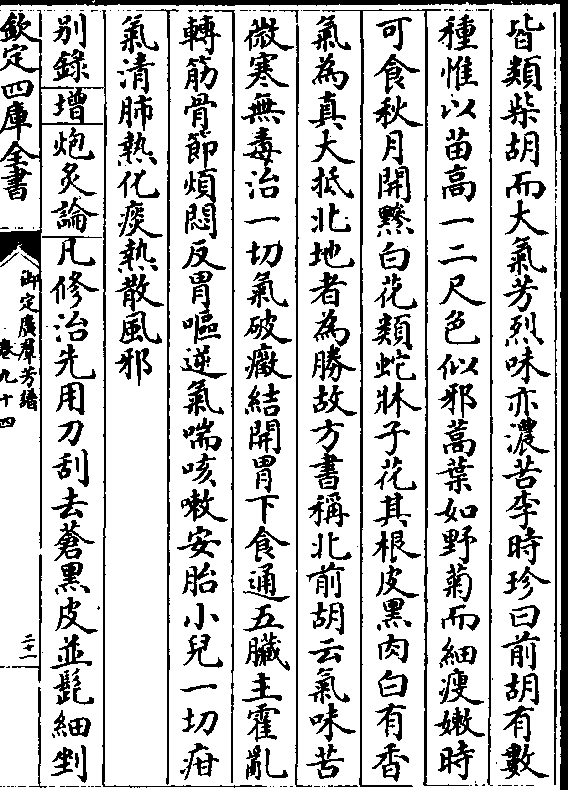 皆類柴胡而大氣芳烈味亦濃苦李時珍曰前胡有數
種惟以苗高一二尺色似邪蒿葉如野菊而細瘦嫩時
可食秋月開黲白花類蛇牀子花其根皮黑肉白有香
氣為真大抵北地者為勝故方書稱北前胡云氣味苦
微寒無毒治一切氣破癥結開胃下食通五臟主霍亂
轉筋骨節煩悶反胃嘔逆氣喘咳嗽安胎小兒一切疳
氣清肺熱化痰熱散風邪
別錄增炮炙論凡修治先用刀刮去蒼黑皮並髭細剉
欽定四庫全書
御定廣羣芳譜
卷九十四
二十一